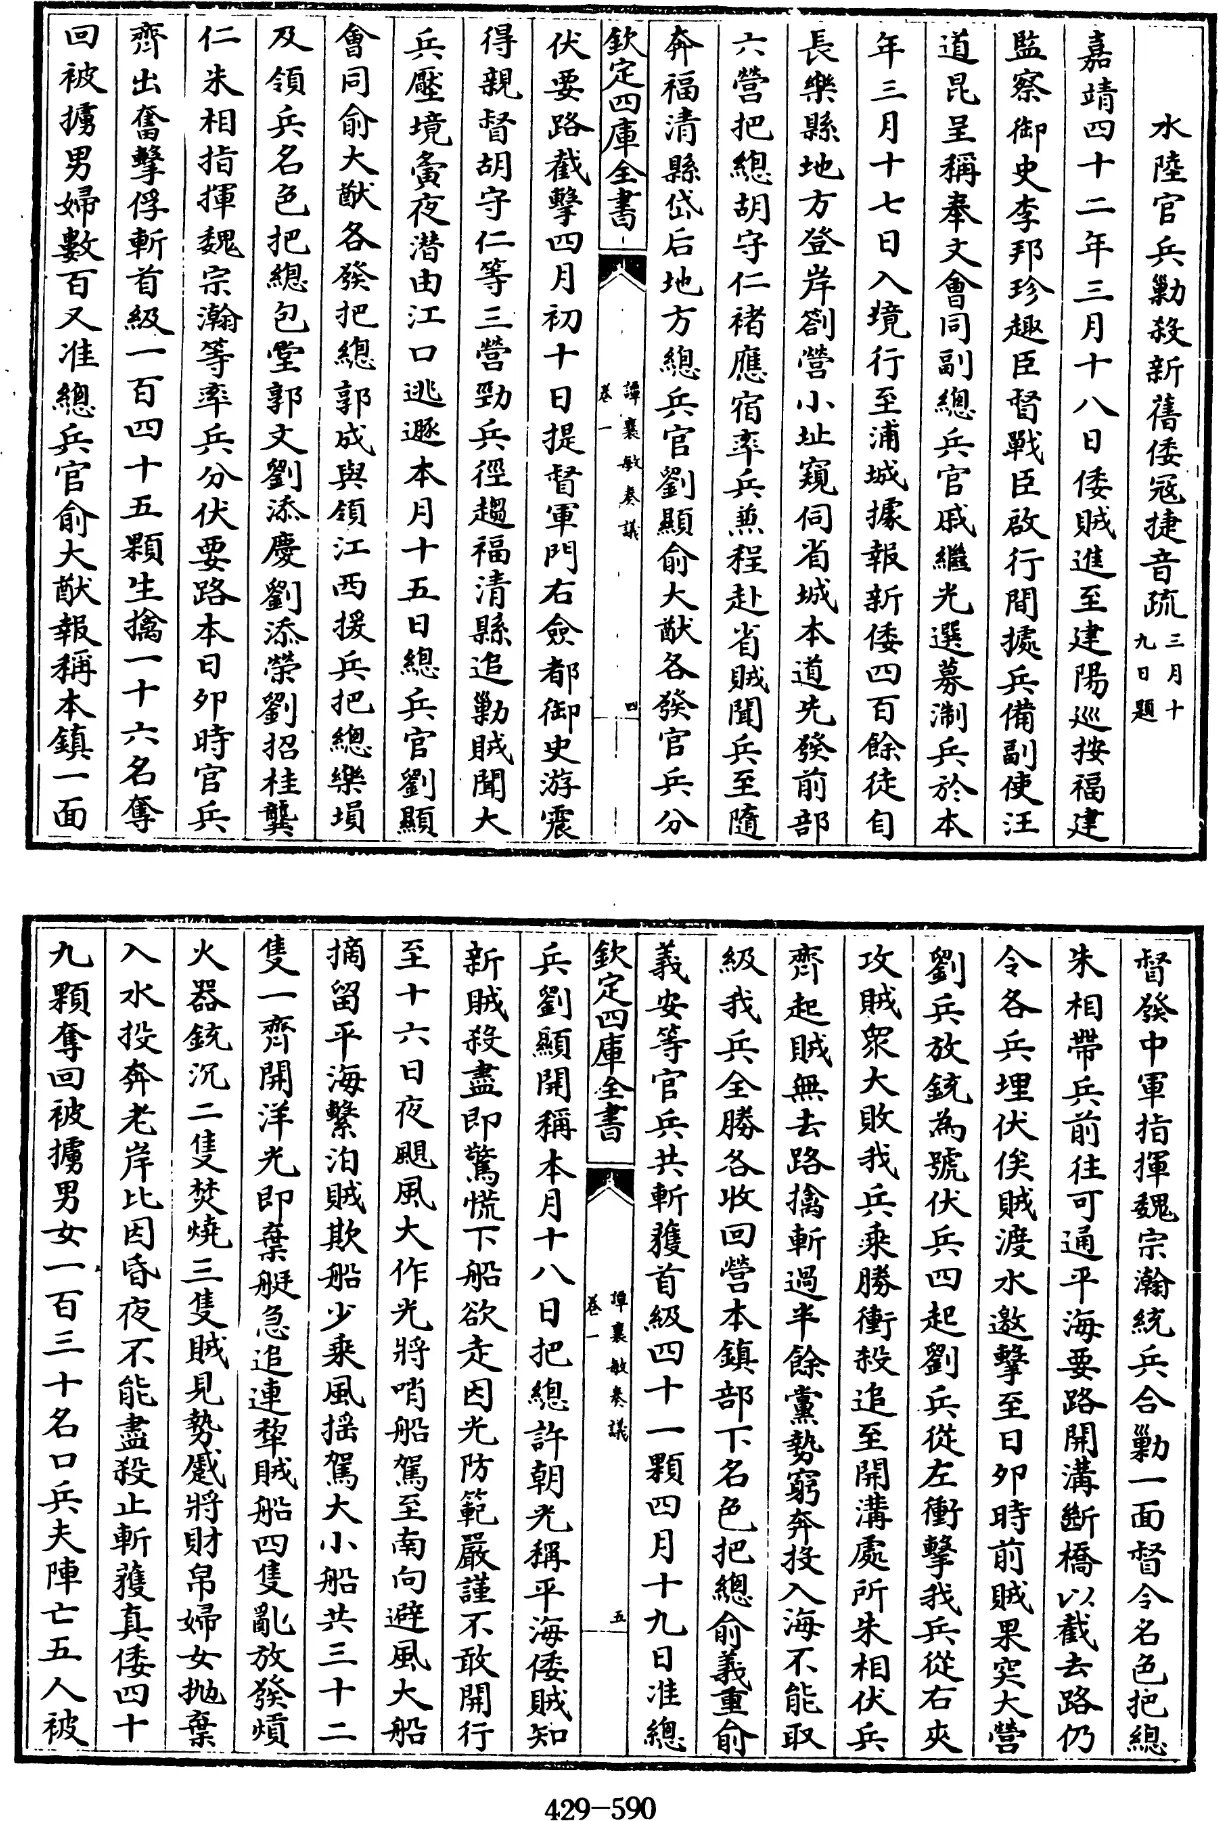 水陸官兵勦殺新舊倭冦捷音疏三月十九日題
嘉靖四十二年三月十八日倭賊進至建陽巡按福建
監察御史李邦珍趣臣督戰臣啟行間據兵備副使汪
道昆呈稱奉文會同副總兵官戚繼光選募淛兵於本
年三月十七日入境行至浦城據報新倭四百餘徒自
長樂縣地方登岸劄營小址窺伺省城本道先發前部
六營把總胡守仁褚應宿率兵兼程赴省賊聞兵至隨
奔福清縣岱后地方總兵官劉顯俞大猷各發官兵分
欽定四庫全書
譚襄敏奏議
卷一
四
伏要路截擊四月初十日提督軍門右僉都御史游震
得親督胡守仁等三營勁兵徑趨福清縣追勦賊聞大
兵壓境夤夜潛由江口逃遯本月十五日總兵官劉顯
會同俞大猷各發把總郭成與領江西援兵把總樂塤
及領兵名色把總包堂郭文劉添慶劉添榮劉招桂龔
仁朱相指揮魏宗瀚等率兵分伏要路本日夘時官兵
齊出奮擊俘斬首級一百四十五顆生擒一十六名奪
回被擄男婦數百又准總兵官俞大猷報稱本鎮一面
督發中軍指揮魏宗瀚統兵合勦一面督令名色把總
朱相帶兵前往可通平海要路開溝斷橋以截去路仍
令各兵埋伏俟賊渡水邀擊至日夘時前賊果突大營
劉兵放銃為號伏兵四起劉兵從左衝擊我兵從右夾
攻賊眾大敗我兵乘勝衝殺追至開溝處所朱相伏兵
齊起賊無去路擒斬過半餘黨勢窮奔投入海不能取
級我兵全勝各收回營本鎮部下名色把總俞義重俞
義安等官兵共斬獲首級四十一顆四月十九日准總
欽定四庫全書
譚襄敏奏議
卷一
五
兵劉顯開稱本月十八日把總許朝光稱平海倭賊知
新賊殺盡即驚慌下船欲走因光防範嚴謹不敢開行
至十六日夜颶風大作光將哨船駕至南向避風大船
摘留平海繫泊賊欺船少乘風揺駕大小船共三十二
隻一齊開洋光即棄艇急追連犂賊船四隻亂放發熕
火器銃沉二隻焚燒三隻賊見勢蹙將財帛婦女拋棄
入水投奔老岸比因昏夜不能盡殺止斬獲真倭四十
九顆奪回被擄男女一百三十名口兵夫陣亡五人被
429-590